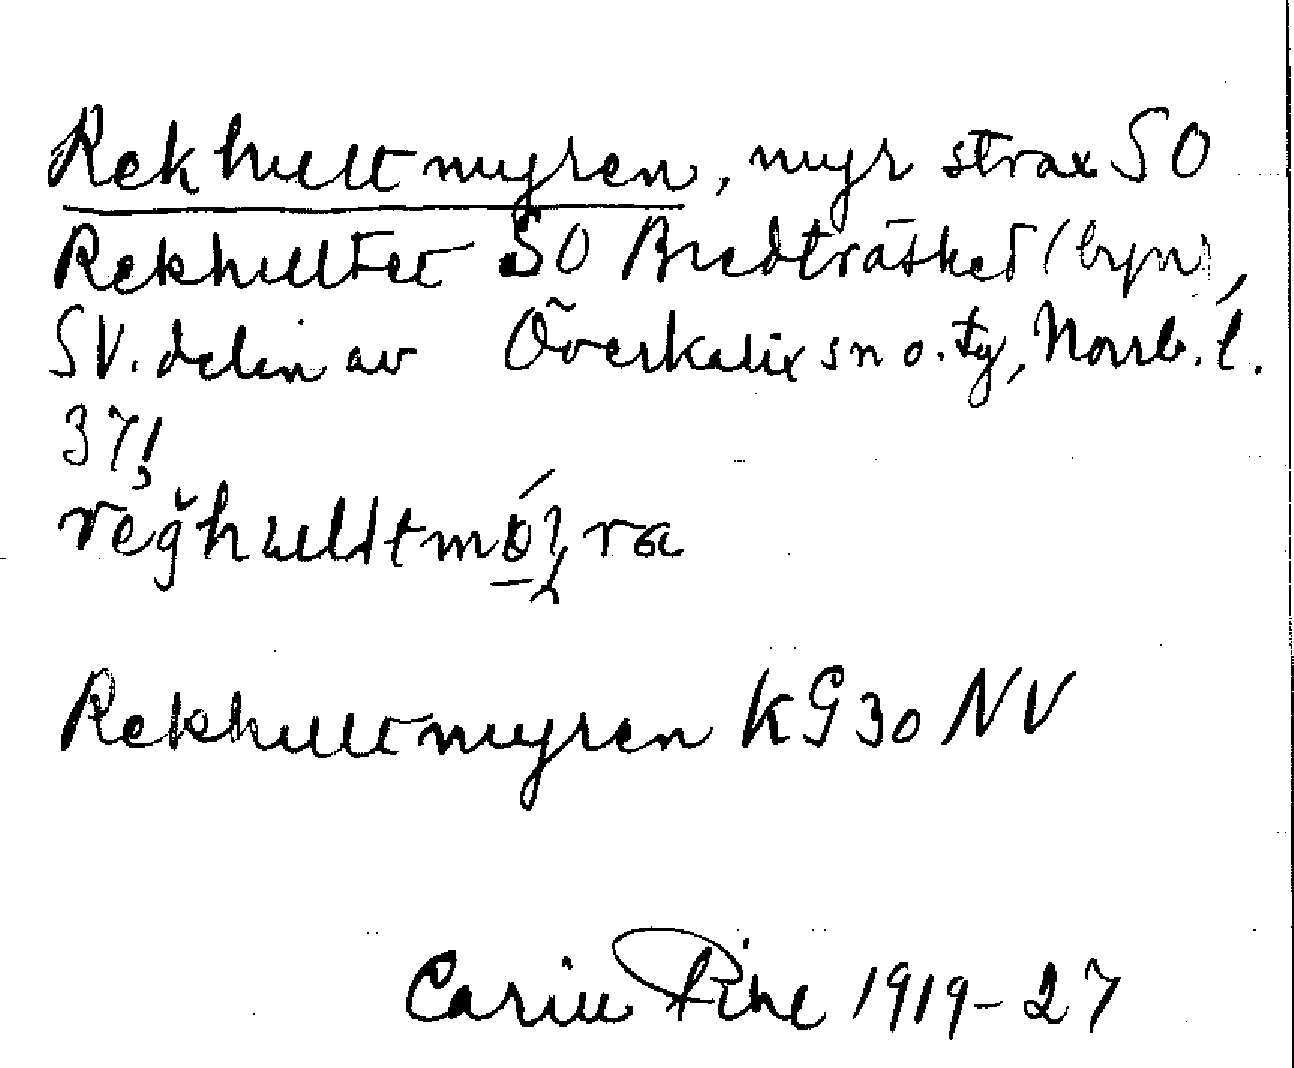 Rekhultmyren, myr strax SO
Rekhultet SO Bredträsket (byn),
SV. delen av Överkalix sn o. tg, Norrb. l.
37!
Rekhultmyren KG 30 NV
Carin Pihl 1919-27